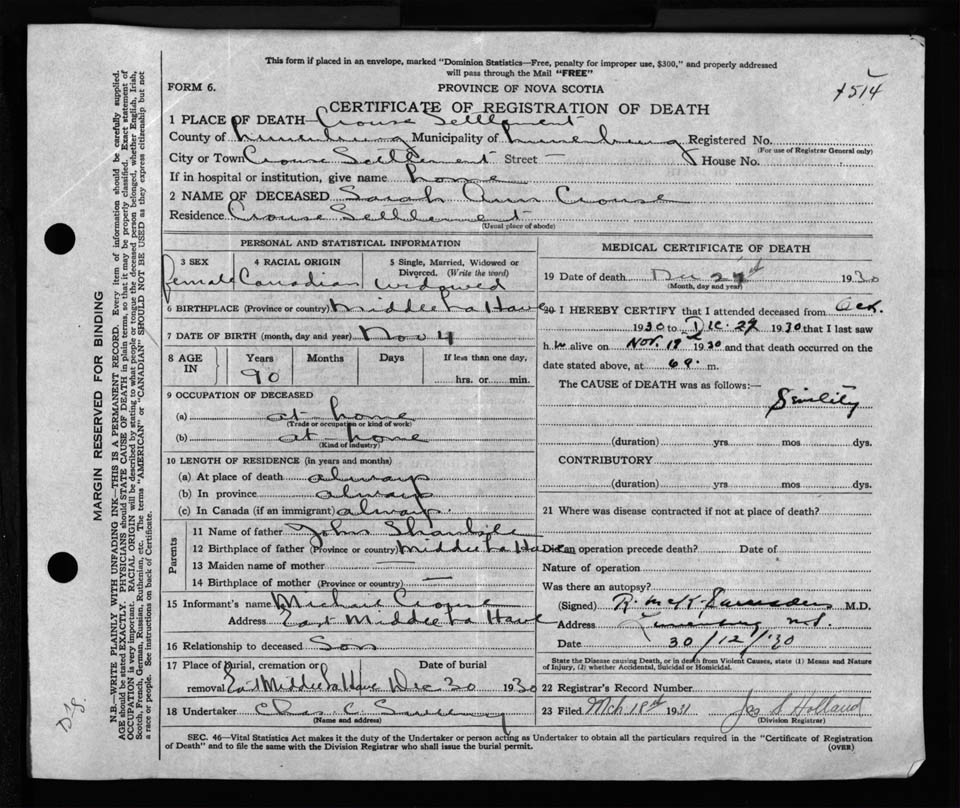 This form if placed in an envelope, marked "Dominion Statistics—Free, penalty for improper use, $300," and properly addressed
will pass through the Mail "FREE"
FORM 6.
PROVINCE OF NOVA SCOTIA
CERTIFICATE OF REGISTRATION OF DEATH
1 PLACE OF DEATH—Crouse Settlement
County of Lunenburg Municipality of Lunenburg Registered No.
(For use of Registrar General only)
City or Town Crouse Settlement Street — House No.
If in hospital or institution, give name home
2 NAME OF DECEASED Sarah Ann Crouse
Residence Crouse Settlement
(Usual place of abode)
PERSONAL AND STATISTICAL INFORMATION
3 SEX 4 RACIAL ORIGIN 5 Single, Married, Widowed or
Divorced. (Write the word)
female Canadian widowed
6 BIRTHPLACE (Province or country) Middle La Have
7 DATE OF BIRTH (month, day and year) Nov 4
8 AGE IN Years Months Days If less than one day,
90 hrs. or min.
9 OCCUPATION OF DECEASED
(a) at home
(Trade or occupation or kind of work)
(b) at home
(Kind of industry)
10 LENGTH OF RESIDENCE (in years and months)
(a) At place of death always
(b) In province always
(c) In Canada (if an immigrant) always.
Parents
11 Name of father John
12 Birthplace of father (Province or country) Middle La Have
13 Maiden name of mother —
14 Birthplace of mother (Province or country) —
15 Informant's name Michail Crouse
Address East Middle La Have
16 Relationship to deceased Son
17 Place of Burial, cremation or Date of burial
removal East Middle La Have Dec 30 1930
18 Undertaker Chas C.
(Name and address)
MEDICAL CERTIFICATE OF DEATH
19 Date of death Dec 27th 1930
(Month, day and year)
20 I HEREBY CERTIFY that I attended deceased from Oct.
1930 to Dec. 27 1930 that I last saw
h er alive on Nov. 19th 1930 and that death occurred on the
date stated above, at 6 a. m.
The CAUSE of DEATH was as follows:—
Senility
(duration) yrs mos dys.
CONTRIBUTORY
(duration) yrs mos dys.
21 Where was disease contracted if not at place of death?
Did an operation precede death? Date of
Nature of operation
Was there an autopsy?
(Signed) R. McK. M.D.
Address Lunenburg N.S.
Date 30/12/'30
State the Disease causing Death, or in death from Violent Causes, state (1) Means and Nature
of Injury, (2) whether Accidental, Suicidal or Homicidal.
22 Registrar's Record Number
23 Filed Mch 18th 1931 Jas S. Holland
(Division Registrar)
SEC. 46—Vital Statistics Act makes it the duty of the Undertaker or person acting as Undertaker to obtain all the particulars required in the "Certificate of Registration
of Death" and to file the same with the Division Registrar who shall issue the burial permit.
(OVER)
MARGIN RESERVED FOR BINDING
N.B.—WRITE PLAINLY WITH UNFADING INK—THIS IS A PERMANENT RECORD. Every item of information should be carefully supplied.
AGE should be stated EXACTLY. PHYSICIANS should STATE CAUSE OF DEATH in plain terms, so that it may be properly classified. Exact statement of
OCCUPATION is very important. RACIAL ORIGIN will be described by stating to what people or tongue the deceased person belonged, whether English, Irish,
Scotch, French, German, Russian, Ruthenian, etc. The terms "AMERICAN" or "CANADIAN" SHOULD NOT BE USED as they express citizenship but not
a race or people. See instructions on back of Certificate.